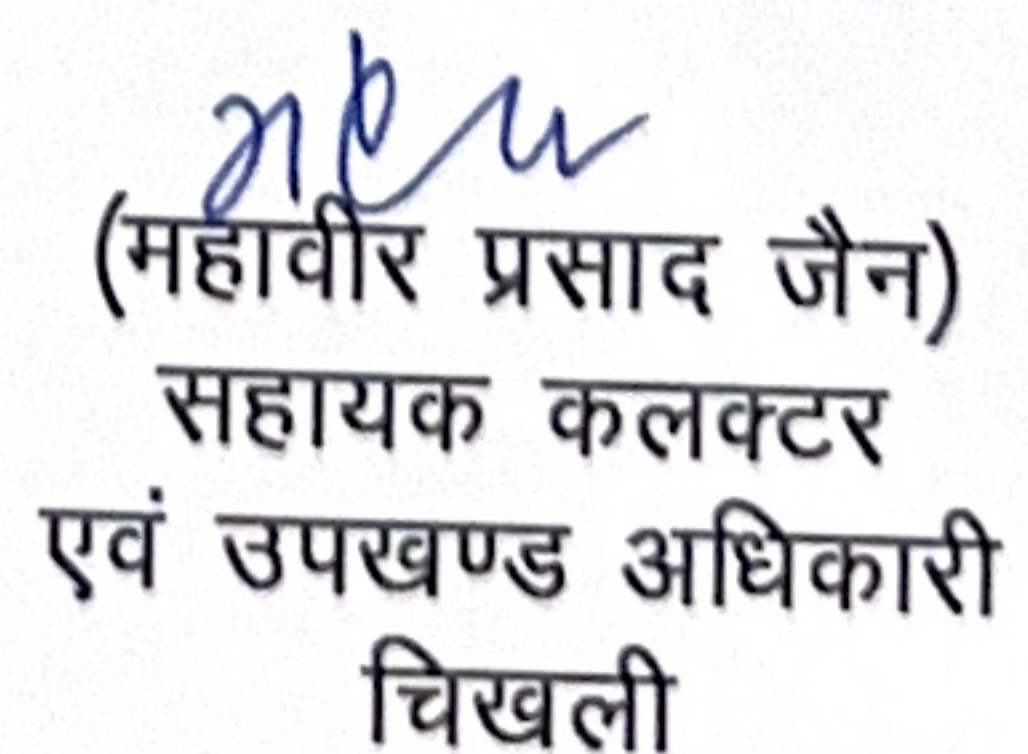 (महावीर प्रसाद जैन)
सहायक कलक्टर
एवं उपखण्ड अधिकारी
चिखली